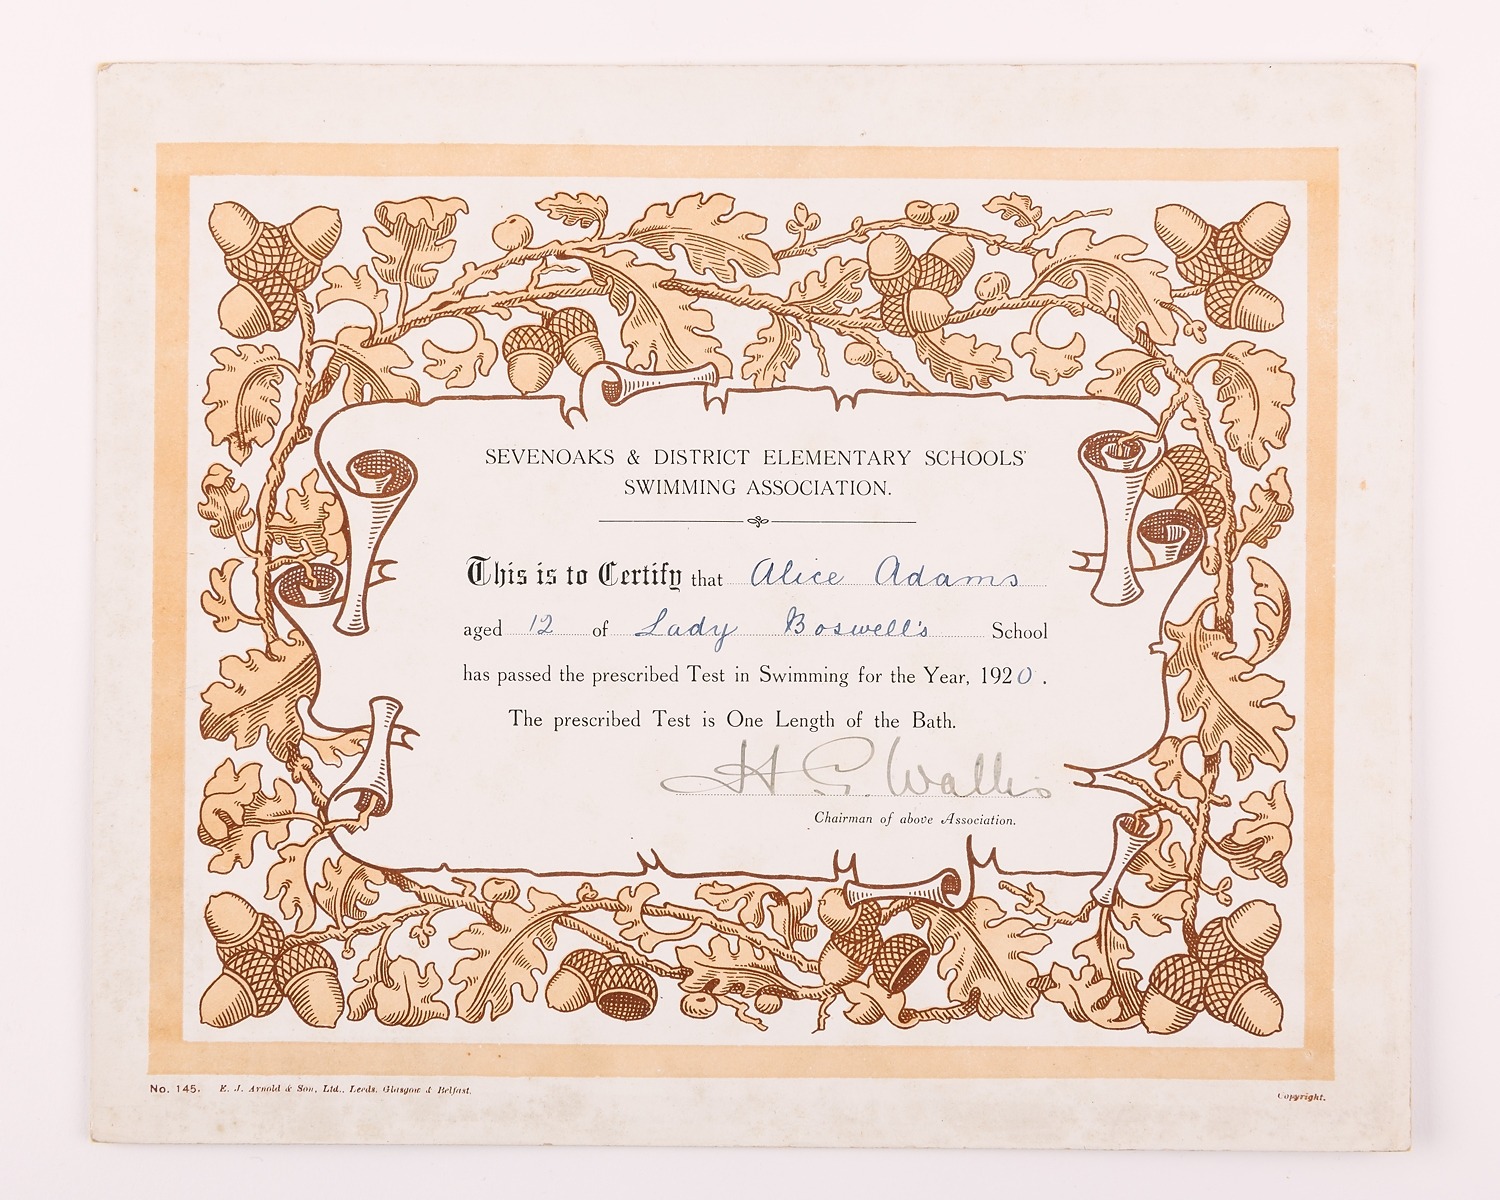 SEVENOAKS & DISTRICT ELEMENTARY SCHOOLS'
SWIMMING ASSOCIATION.
This is to Certify that Alice Adams
aged 12 of Lady Boswell's School
has passed the prescribed Test in Swimming for the Year, 1920.
The prescribed Test is One Length of the Bath.
H. G. Wallis
Chairman of above Association.
No. 145. E. J. Arnold & Son, Ltd., Leeds, Glasgow & Belfast.
Copyright.